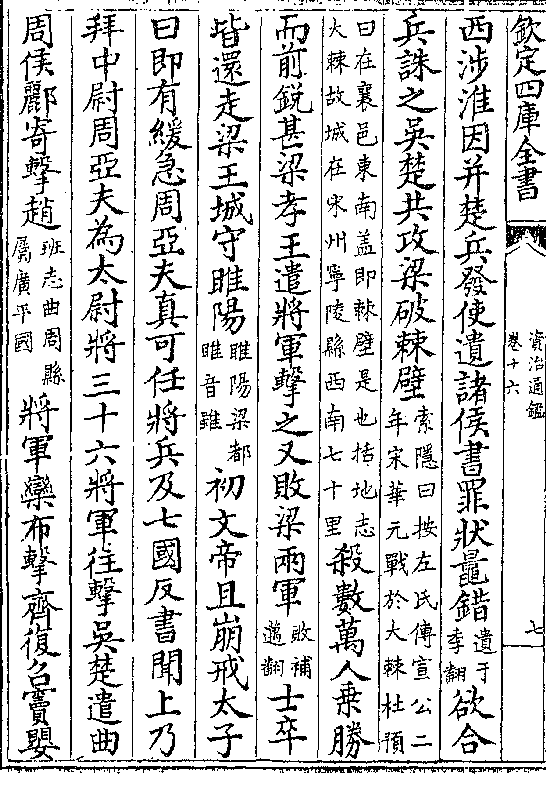 欽定四庫全書
資治通鑑
卷十六
七
西涉淮因并楚兵發使遺諸侯書罪狀鼂錯遺于季翻欲合
兵誅之吳楚共攻梁破棘壁索隱曰按左氏傳宣公二年宋華元戰於大棘杜預
曰在襄邑東南盖即棘壁是也括地志大棘故城在宋州寧陵縣西南七十里殺數萬人乗勝
而前銳甚梁孝王遣將軍擊之又敗梁兩軍敗補邁翻士卒
皆還走梁王城守睢陽睢陽梁都睢音雖初文帝且崩戒太子
曰即有緩急周亞夫真可任將兵及七國反書聞上乃
拜中尉周亞夫為太尉將三十六將軍往擊吳楚遣曲
周侯酈寄擊趙班志曲周縣屬廣平國將軍欒布擊齊復召竇嬰